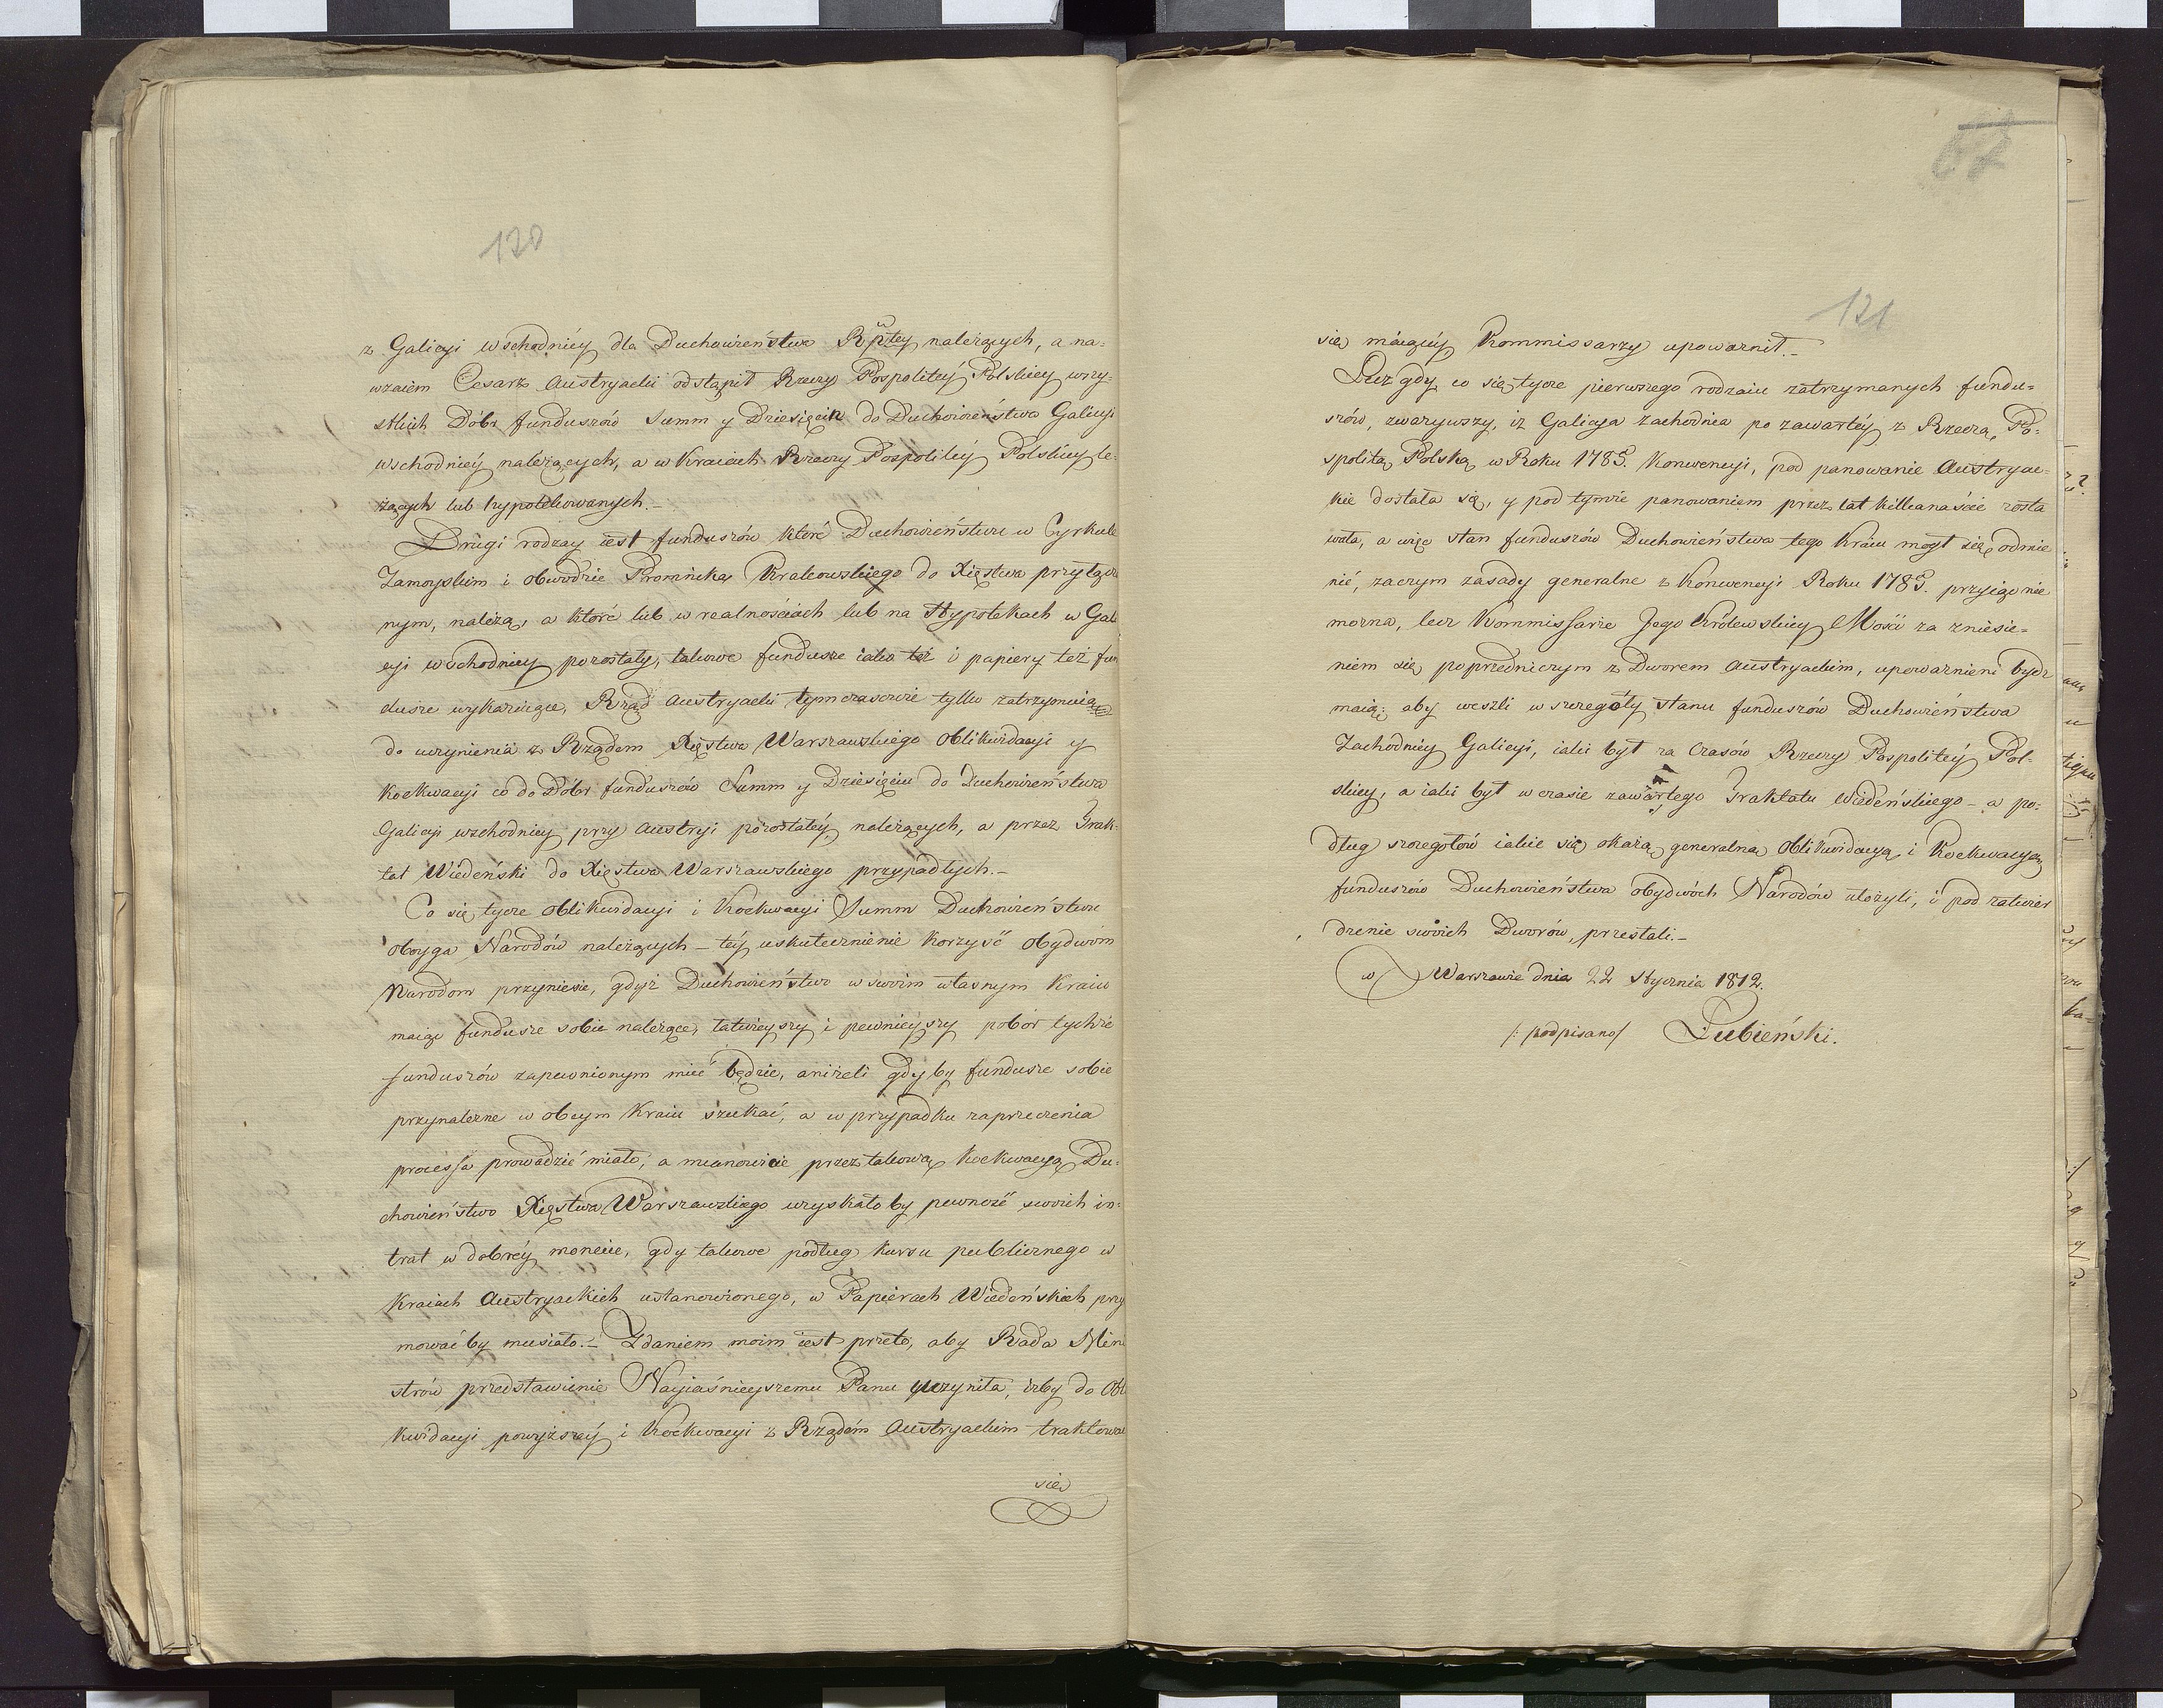 120
z Galicyi wschodniéy dla Duchowieństwa Rptey należących, a na=
wzaiem Cesarz Austryacki odstąpił Rzeczy Pospolitéy Polskiey wszy-
stkich Dóbr funduszów Summ y Dziesięcin do Duchowieństwa Galicyi
wschodniéy należących, a w Kraiach Rzeczy Pospolitéy Polskiey le-
żących lub hypotekowanych.–
Drugi rodzay iest funduszów które Duchowieństwu w Cyrkule
Zamoyskim i obwodzie Promieka Krakowskiego do Xięstwa przyłączo
nym, należą, a które lub w realnościach lub na Hypotekach w Gali
cyi wschodniey pozostały, takowe fundusze iako też i papiery też fun
dusze wykazuiące, Rząd Austryacki tymczasowie tylko zatrzymuie
do uczynienia z Rządem Xięstwa Warszawskiego Oblikwidacyi y
Koekwacyi co do Dóbr funduszów Summ y Dziesięcin do Duchowieństwa
Galicyi wschodniey przy Austryi pozostałéy należących, a przez Trak-
tat Wiedeński do Xięstwa Warszawskiego przypadłych.–
Co się tycze Oblikwidacyi i Koekwacyi Summ Duchowieństwu
oboyga Narodów należących – téy uskutecznienie korzyść obydwóm
Narodom przyniesie, gdyż Duchowieństwo w swoim własnym Kraiu
maiąc fundusze sobie należące, łatwieyszy i pewnieyszy pobór tychże
funduszów zapewnionym mieć będzie, aniżeli gdyby fundusze sobie
przynależne w obcym Kraiu szukać, a w przypadku zaprzeczenia
processa prowadzić miało; a mianowicie przez takową Koekwacyą Du-
chowieństwo Xięstwa Warszawskiego uzyskało by pewność swoich in-
trat w dobréy monecie, gdy takowe podług kursu publicznego w
Kraiach Austryackich ustanowionego, w Papierach Wiedeńskich przy
mować by musiało.– Zdaniem moim iest przeto, aby Rada Mini
strów przedstawienie Nayiaśnieyszemu Panu uczyniła, iżby do Obli
kwidacyi powyższéy i Koekwacyi z Rządem Austryackim traktowa
się
121
się maiącéy Kommissarzy upoważnił.–
Lecz gdy co się tycze pierwszego rodzaiu zatrzymanych fundu=
szów, zważywszy, iż Galicya zachodnia po zawartéy z Rzeczą Po-
spolitą Polską w Roku 1785. Konwencyi, pod panowanie Austryac-
kie dostała się, y pod tymże panowaniem przez lat kilkanaście zosta
wała, a więc stan funduszów Duchowieństwa tego kraiu mógł się odmie
nić, zaczym zasady generalne z Konwencyi Roku 1785. przyiąć nie
można, lecz Kommissarze Jego Królewskiey Mości za zniesie=
niem się poprzedniczym z Dworem Austryackim, upoważnieni bydź
maią; aby weszli w szczegóły stanu funduszów Duchowieństwa
Zachodniey Galicyi, iaki był za Czasów Rzeczy Pospolitéy Pol-
skiey, a iaki był w czasie zawartego Traktatu Wiedeńskiego – a po-
dług szczegółów iakie się okażą generalną Oblikwidacyą i Koekwacyą
funduszów Duchowieństwa obydwóch Narodów ułożyli, i pod zatwier
dzenie swoich Dworów, przesłali.–
w Warszawie dnia 22 Stycznia 1812.
/: podpisano/ Łubieński.